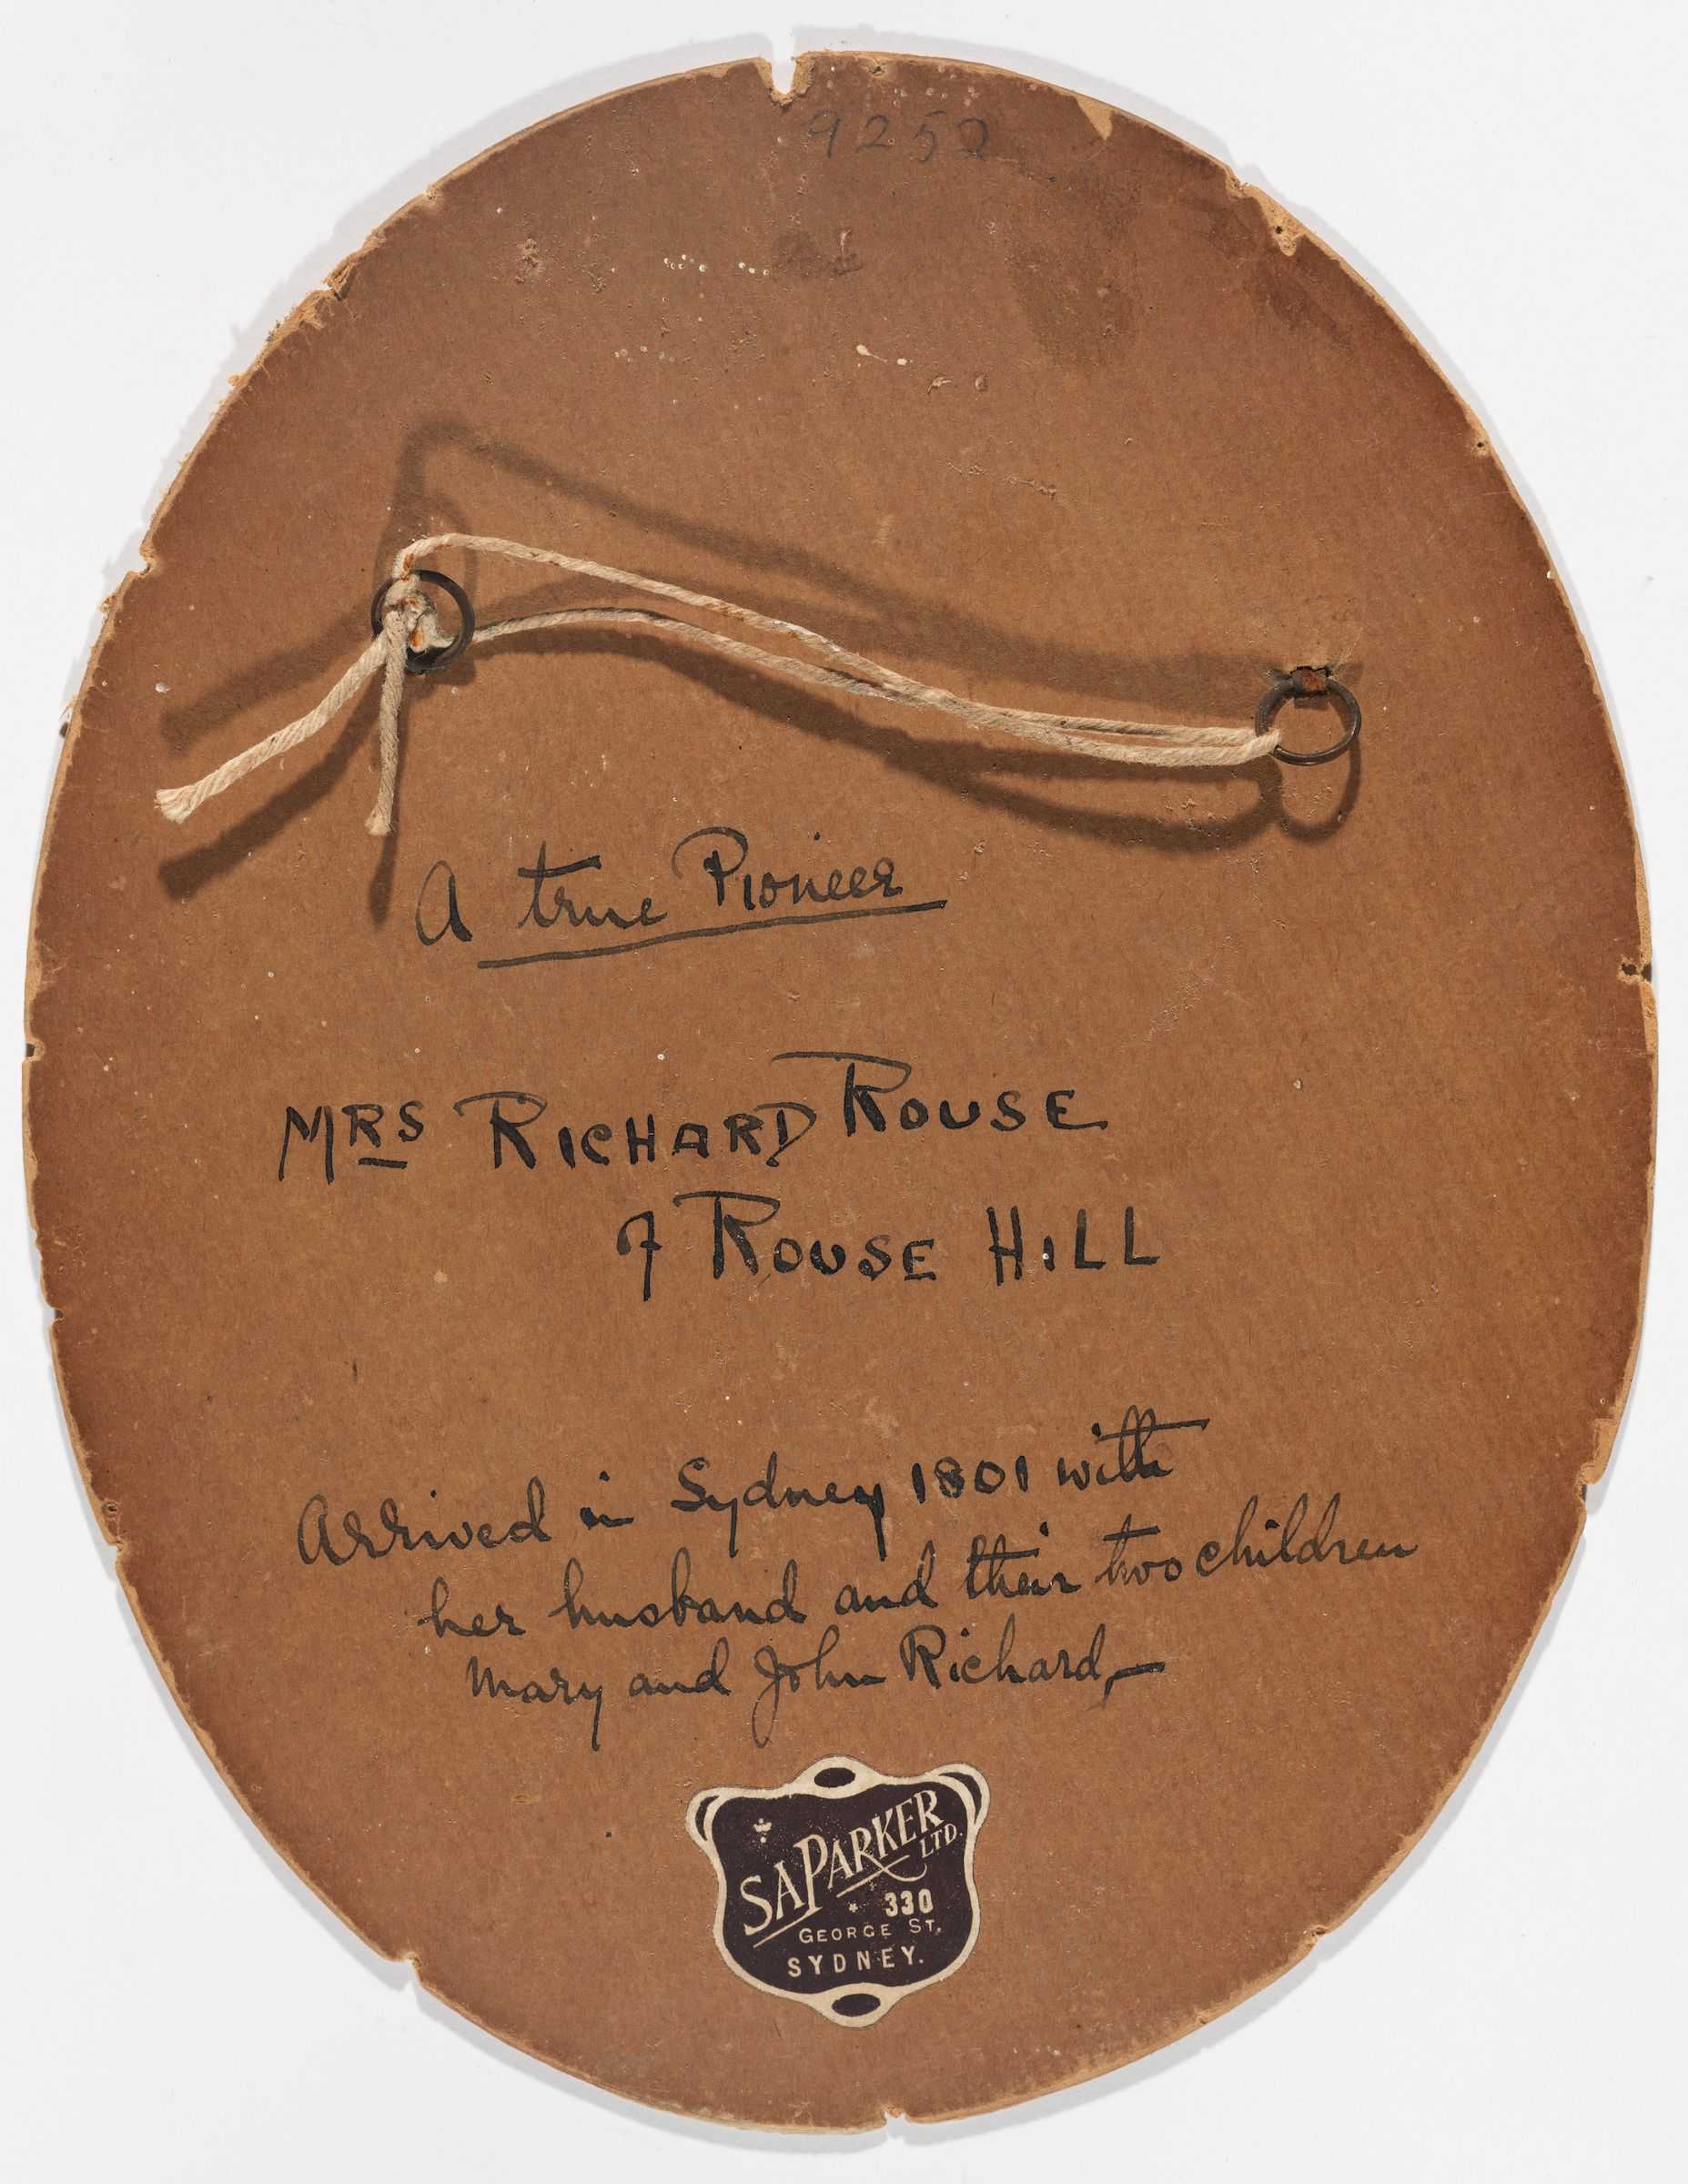 9252
A true Pioneer
MRS RICHARD ROUSE
of ROUSE HILL
Arrived in Sydney 1801 with
her husband and their two children
Mary and John Richard,—
SAPARKER
LTD.
330
GEORGE ST.
SYDNEY.